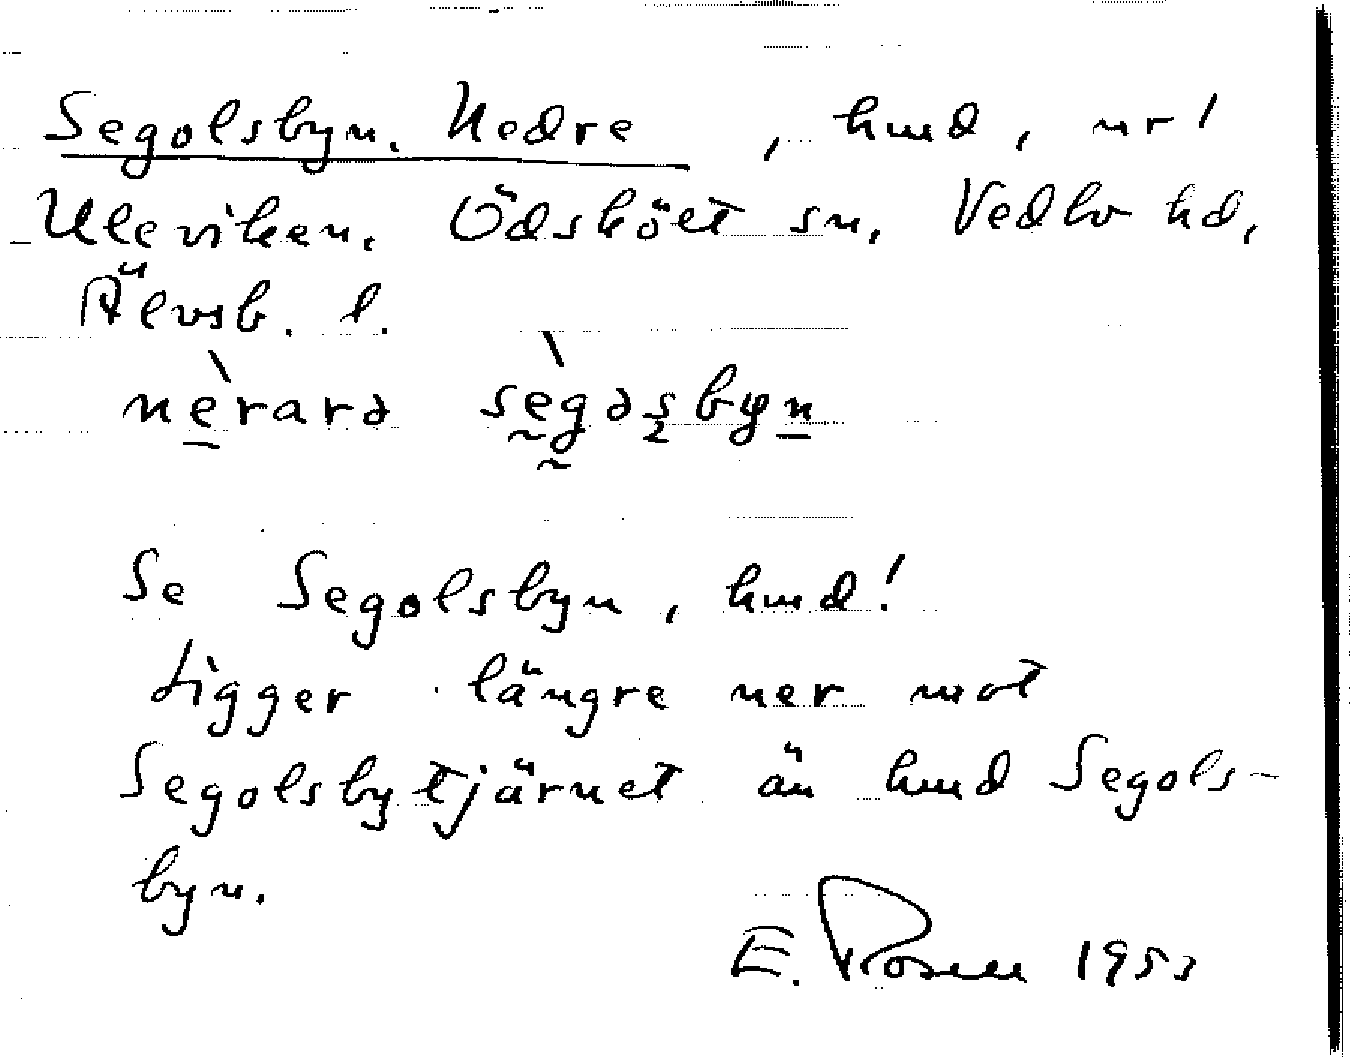 Segolsbyn. Nedre , hmd, nr 1
Uleviken. ÖdsköLt sn, Vedbo hd,
Älvsb. l.
nèrarə sègəsbyn
Se Segolsbyn, hmd!
Ligger längre ner mot
Segolsbytjärnet än hmd Segols-
byn.
E. Rosell 1953